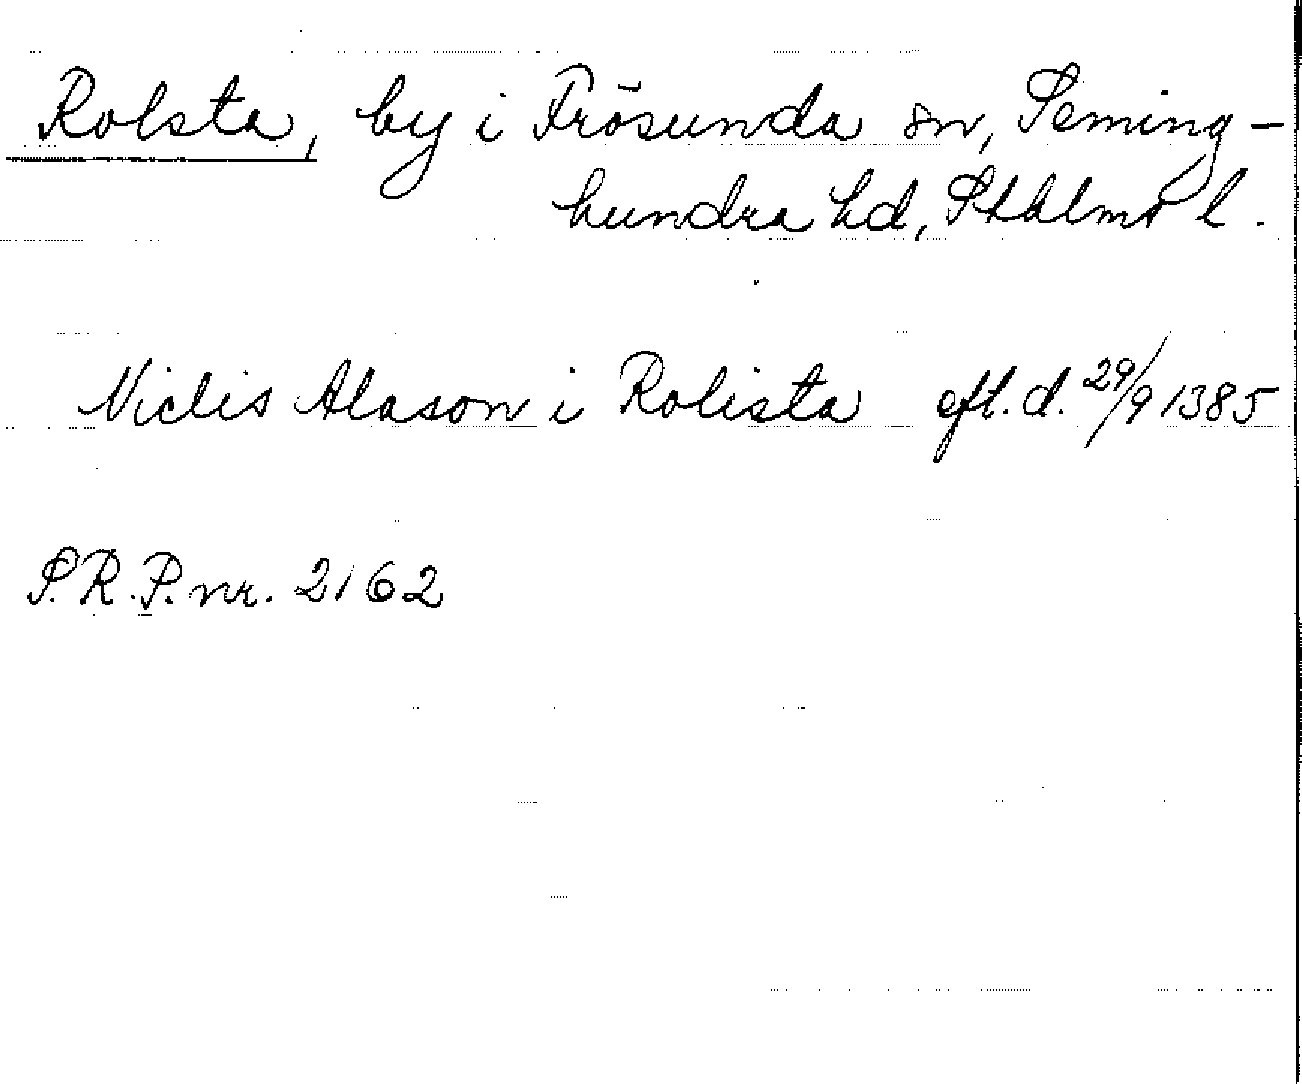 Rolsta, by i Frösunda sn, Seming-
hundra hd, Sthlms l.
Niclis Alason i Rolista eft. d. 29/9 1385
S.R.P. nr. 2162